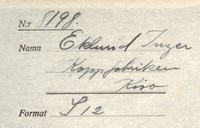 N:r 8198.
Namn Eklund Inger
Kappfabriken
Kiso
Format S 12